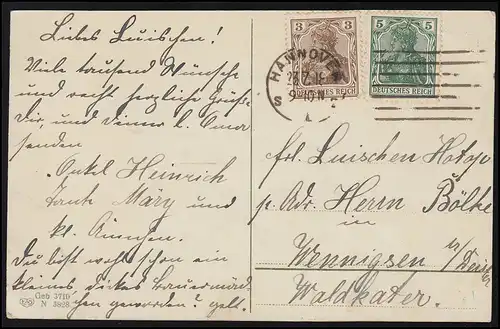 Liebes Luischen!
Viele tausend Wünsche
und recht herzliche Grüße
Dir, und deiner l. Oma
senden
Onkel Heinrich
Tante Märy und
kl. Ännchen.
Du bist wohl schon ein
kleines dickes Bauernmäd-
chen geworden? gelt.
Geb 3719
N 3828
3 3
DEUTSCHES REICH
5 5
DEUTSCHES REICH
HANNOVER
S
9-10 N
frl. Luischen
p. Adr. Herrn Bölke
in
Wennigsen a/Deister
Waldkater.